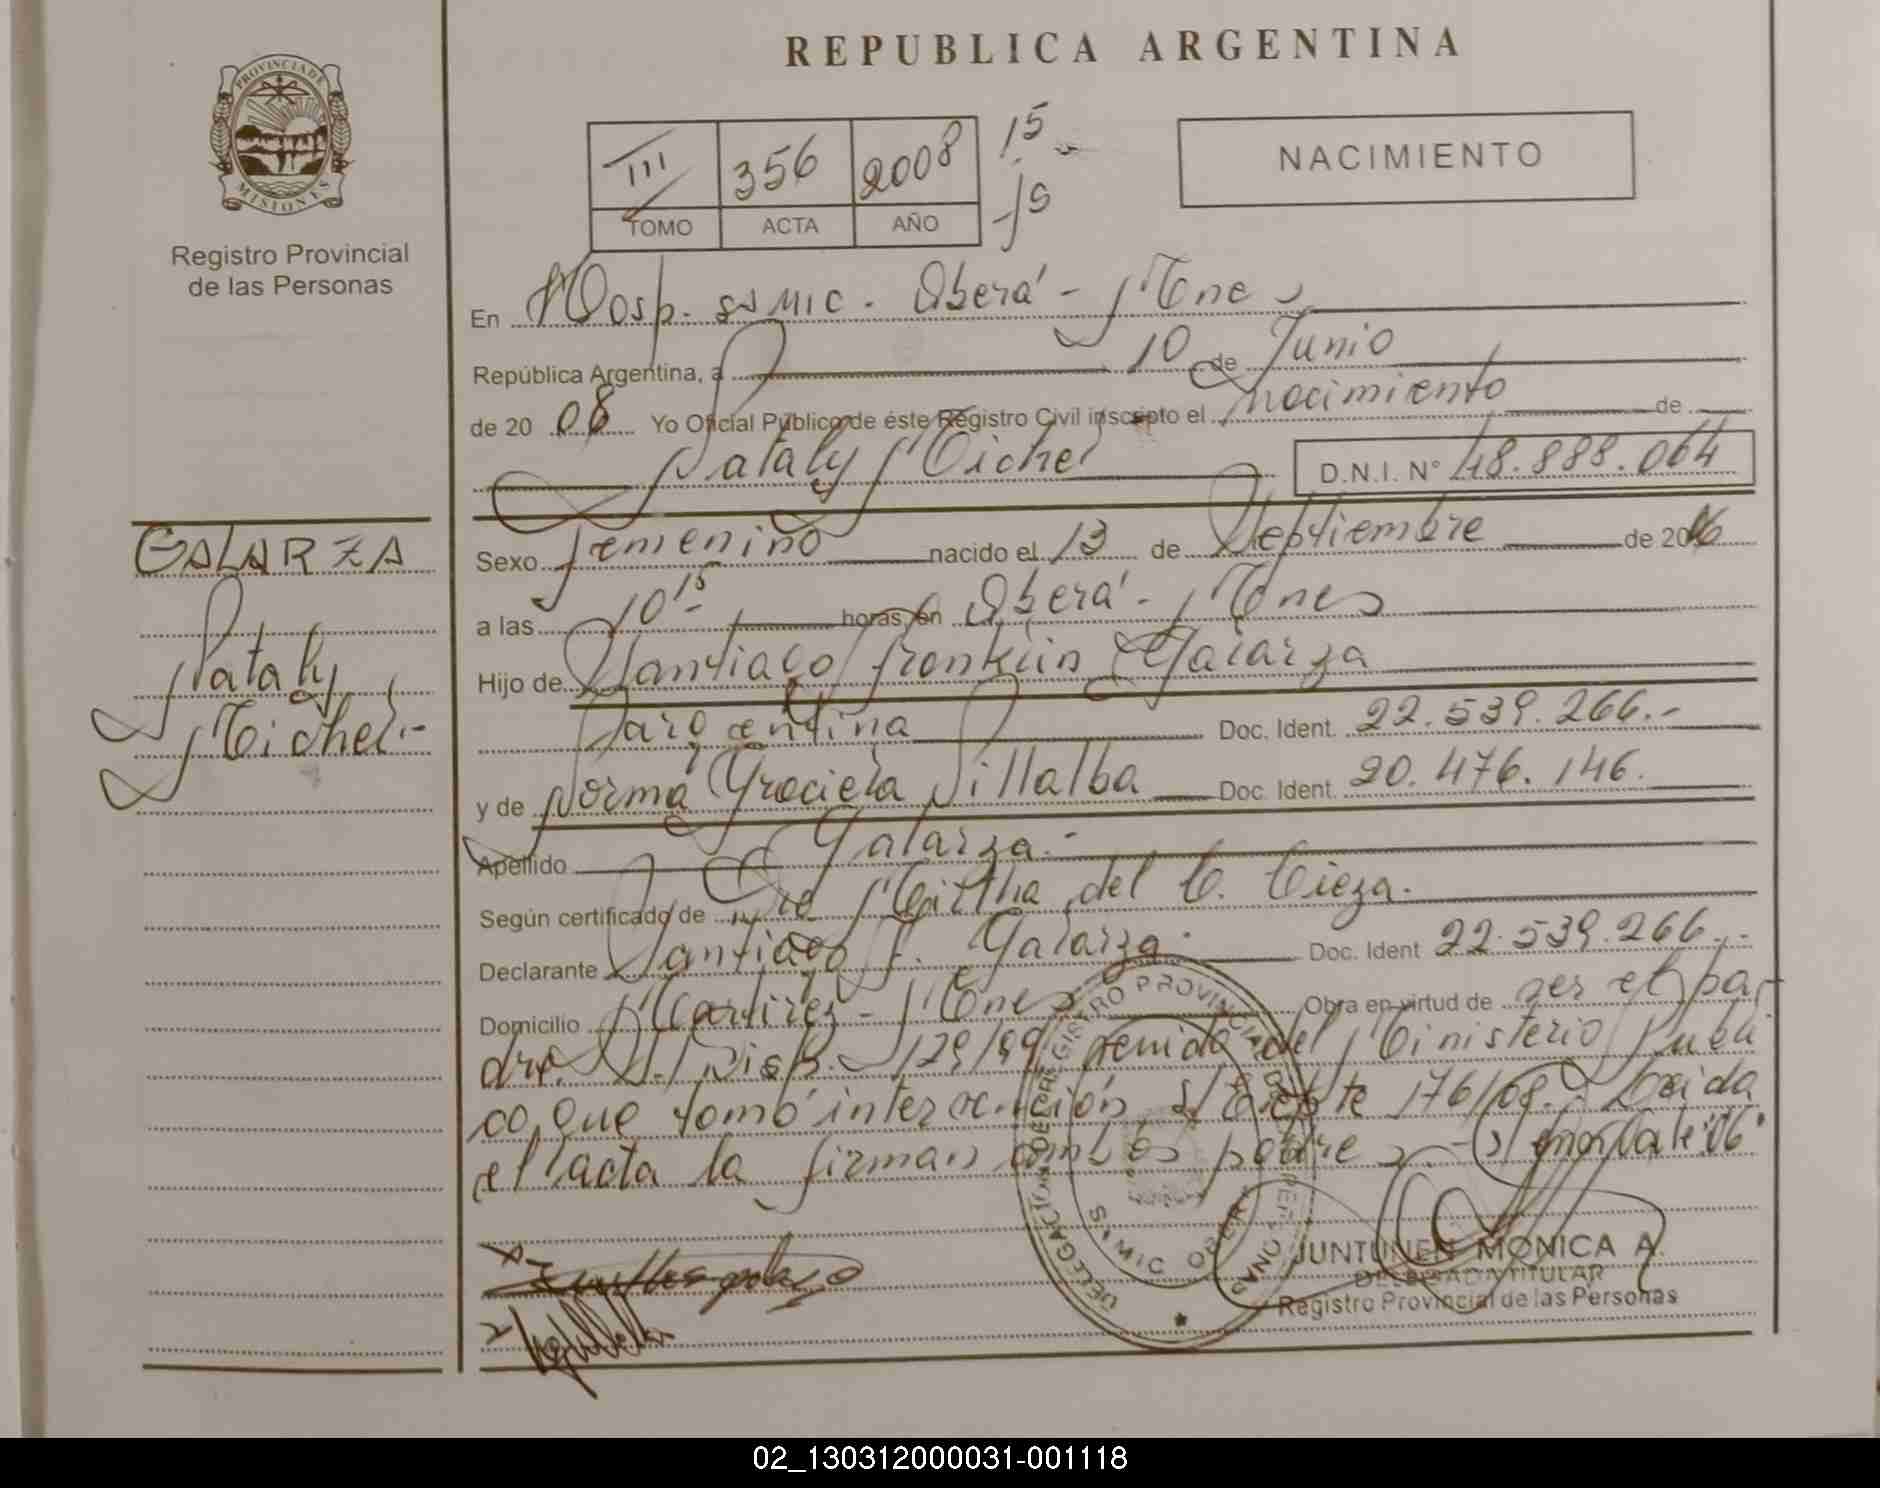 REPUBLICA ARGENTINA
PROVINCIA DE
MISIONES
Registro Provincial
de las Personas
III 356 2008
TOMO ACTA AÑO
15
NACIMIENTO
En Hosp. SAMIC. Oberá - Mnes
República Argentina, a 10 de Junio
de 2008 Yo Oficial Público de éste Registro Civil inscripto el nacimiento de
Nataly Michel D.N.I. N° 48.888.064
GALARZA
Nataly
Michel.-
Sexo femenino nacido el 13 de Septiembre de 2006
a las 10 15 horas en Oberá - Mnes
Hijo de Santiago Franklin Galarza
argentina Doc. Ident. 22.539.266.-
y de Norma Graciela Villalba Doc. Ident. 20.476.146.
Apellido Galarza.-
Según certificado de Dra Mirtha del C. Cieza.
Declarante Santiago F. Galarza. Doc. Ident 22.539.266.-
Domicilio Martires - Mnes Obra en virtud de ser el pa-
dre. Disp. 129/99 del Ministerio Publi
co que tomó intervención Expte 176/08. Leida
el acta la firman ambos padres - vale: 06
DELEGACION DEL REGISTRO PROVINCIAL DE LAS PERSONAS
SAMIC OBERA
JUNTUNEN MONICA A.
DELEGADA TITULAR
Registro Provincial de las Personas
02_130312000031-001118